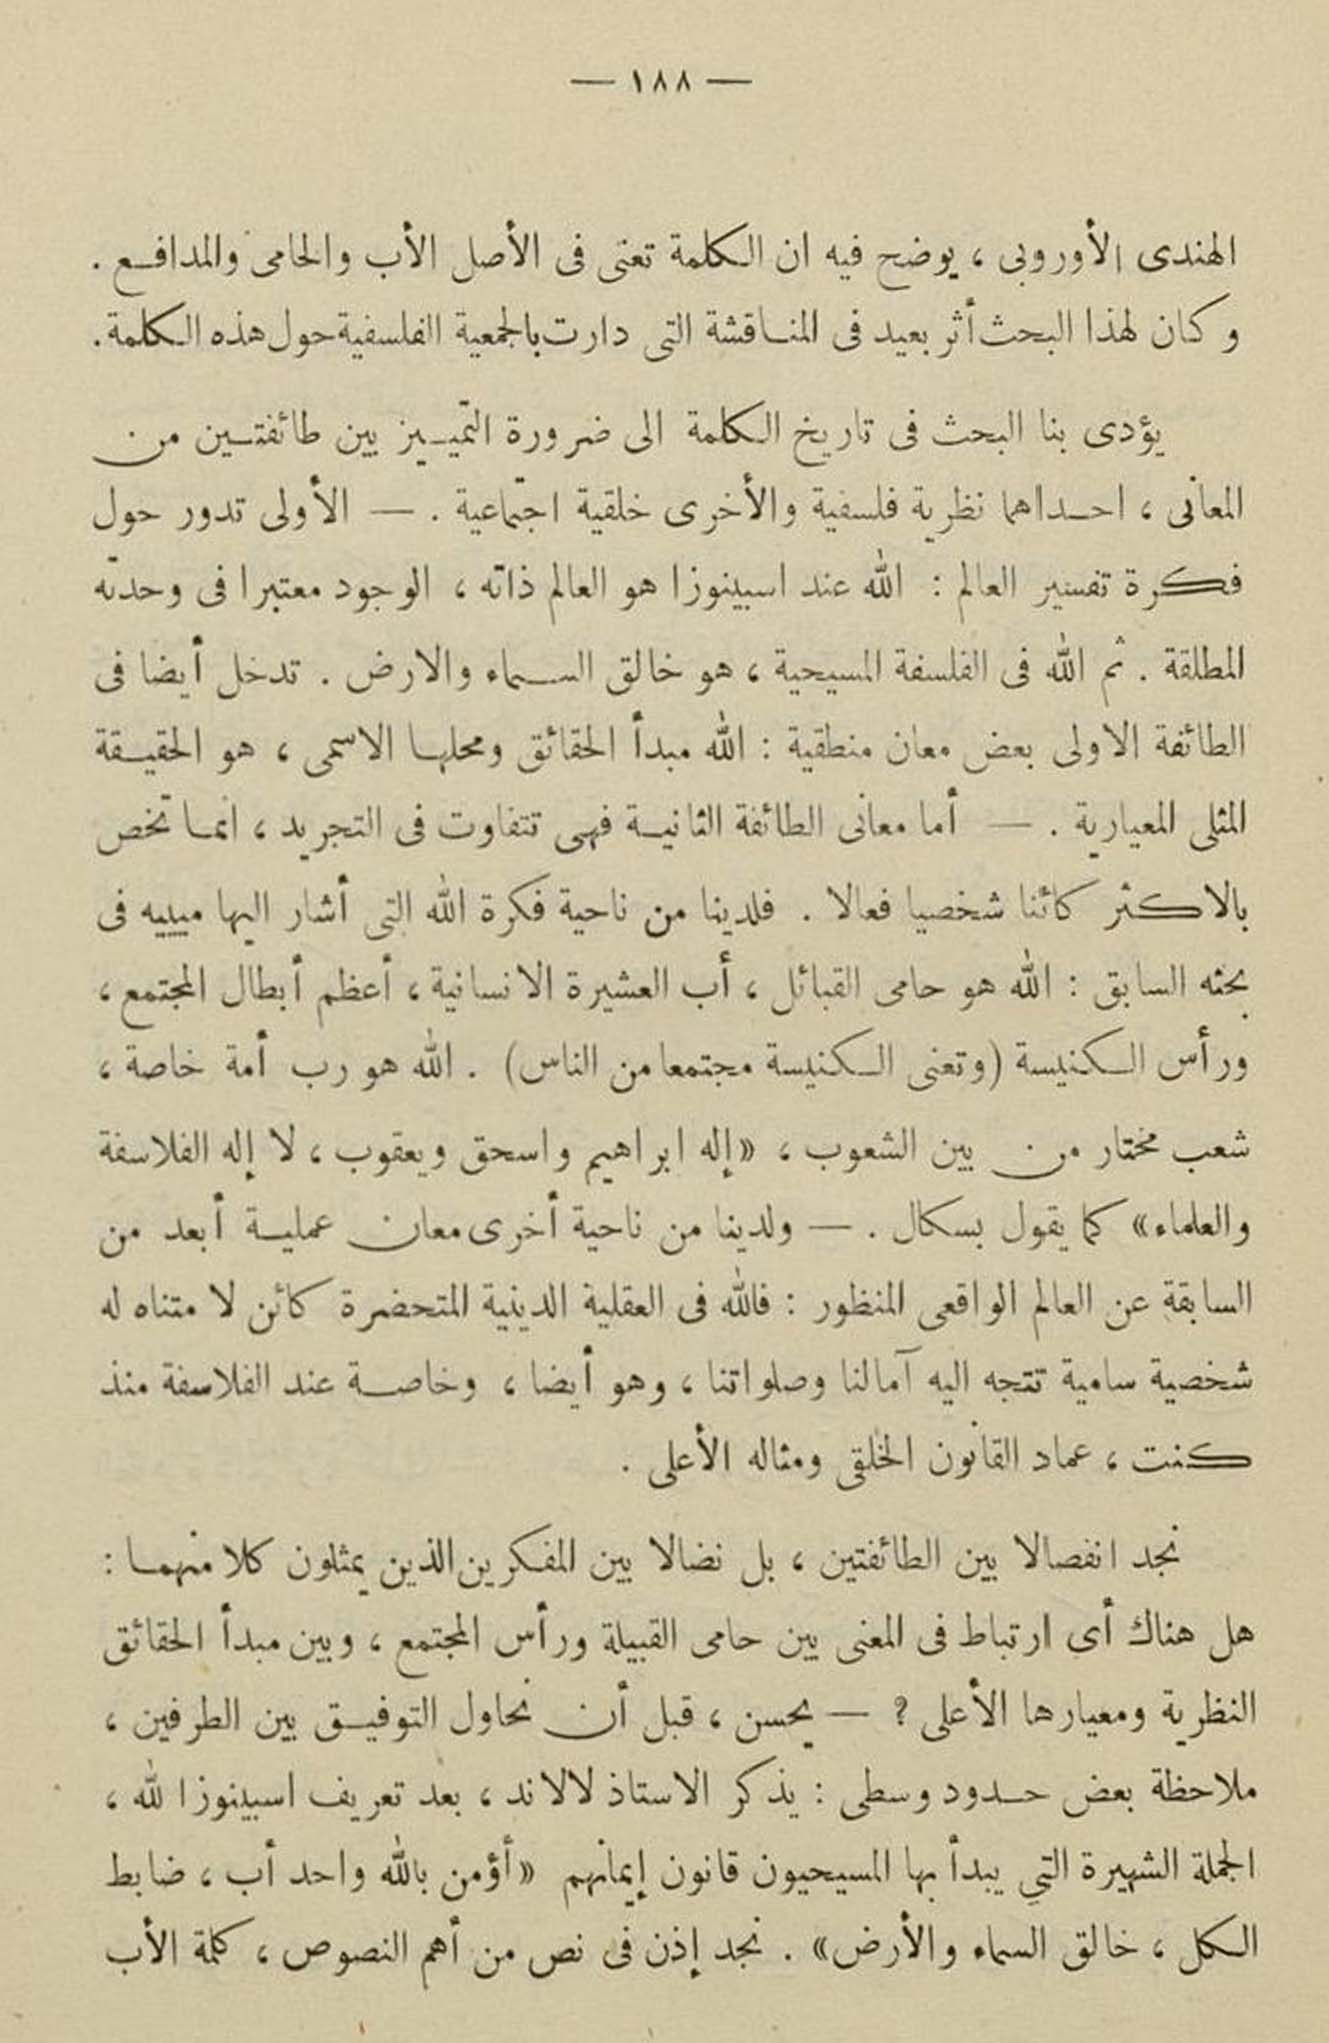 — ١٨٨ —
الهندى الأوروبى ، يوضح فيه ان الكلمة تعنى فى الأصل الأب والحامى والمدافع .
وكان لهذا البحث أثر بعيد فى المناقشة التى دارت بالجمعية الفلسفية حول هذه الكلمة .
يؤدى بنا البحث فى تاريخ الكلمة الى ضرورة التمييز بين طائفتين من
المعانى ، احداهما نظرية فلسفية والأخرى خلقية اجتماعية . — الأولى تدور حول
فكرة تفسير العالم : الله عند اسبينوزا هو العالم ذاته ، الوجود معتبرا فى وحدته
المطلقة . ثم الله فى الفلسفة المسيحية ، هو خالق السماء والارض . تدخل أيضا فى
الطائفة الاولى بعض معان منطقية : الله مبدأ الحقائق ومحلها الاسمى ، هو الحقيقة
المثلى المعيارية . — أما معانى الطائفة الثانية فهى تتفاوت فى التجريد ، انما تخص
بالاكثر كائنا شخصيا فعالا . فلدينا من ناحية فكرة الله التى أشار اليها مييه فى
بحثه السابق : الله هو حامى القبائل ، أب العشيرة الانسانية ، أعظم أبطال المجتمع ،
ورأس الكنيسة (وتعنى الكنيسة مجتمعا من الناس) . الله هو رب أمة خاصة ،
شعب مختار من بين الشعوب ، «إله ابراهيم واسحق ويعقوب ، لا إله الفلاسفة
والعلماء» كما يقول بسكال . — ولدينا من ناحية أخرى معان عملية أبعد من
السابقة عن العالم الواقعى المنظور : فالله فى العقلية الدينية المتحضرة كائن لا متناه له
شخصية سامية تتجه اليه آمالنا وصلواتنا ، وهو أيضا ، وخاصة عند الفلاسفة منذ
كنت ، عماد القانون الخلقى ومثاله الأعلى .
نجد انفصالا بين الطائفتين ، بل نضالا بين المفكرين الذين يمثلون كلا منهما :
هل هناك أى ارتباط فى المعنى بين حامى القبيلة ورأس المجتمع ، وبين مبدأ الحقائق
النظرية ومعيارها الأعلى ؟ — يحسن ، قبل أن نحاول التوفيق بين الطرفين ،
ملاحظة بعض حدود وسطى : يذكر الاستاذ لالاند ، بعد تعريف اسبينوزا لله ،
الجملة الشهيرة التي يبدأ بها المسيحيون قانون إيمانهم «أؤمن بالله واحد أب ، ضابط
الكل ، خالق السماء والأرض» . نجد إذن فى نص من أهم النصوص ، كلمة الأب